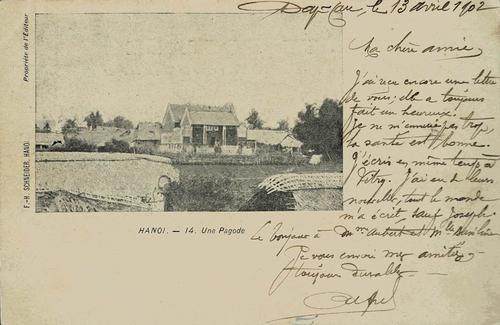 Day-Cau, le 13 avril 1902
Ma chère amie,
J'ai reçu encore une lettre
de vous; elle a toujours
fait un heureux.
Je ne m'ennuie pas trop
la santé est bonne.
J'écris en même temps à
Vitry. J'ai eu de leurs
nouvelles, tout le monde
m'a écrit, sauf Joseph.
Le bonjour à Mme Aubert et Mlle
Je vous envoie mes amitiés
toujours durables
Propriété de l'Editeur
F.-H. SCHNEIDER, HANOI.
HANOI. — 14. Une Pagode